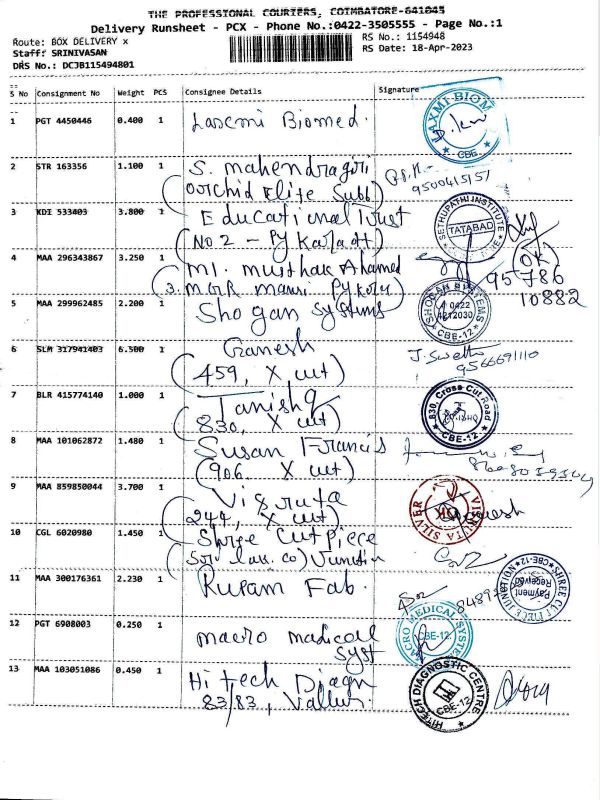 THE PROFESSIONAL COURIERS, COIMBATORE-641045
Delivery Runsheet - PCX - Phone No.:0422-3505555 - Page No.:1
Route: BOX DELIVERY x
Staff: SRINIVASAN
DRS No.: DCJB115494801
RS No.: 1154948
RS Date: 18-Apr-2023
S No Consignment No Weight PCS Consignee Details Signature
1 PGT 4450446 0.400 1 Laxcmi Biomed.
LAXMI BIOM
CBE
2 STR 163356 1.100 1 S. Mahendragiri
(Oorchid Elite Subb)
9500415157
3 KDI 533403 3.800 1 Educational Trust
(No 2 -
SETHUPATHI INSTITUTE
TATABAD
4 MAA 296343867 3.250 1 M1. Musthak Ahamed
(3. M.G.R
(OK)
95786
10882
5 MAA 299962485 2.200 1 Shogan Systems
SHOGAN SYSTEMS
0422
4212030
CBE-12
6 SLM 317941403 6.500 1 Ganesh
(459, X cut)
9566691110
7 BLR 415774140 1.000 1 Tanishq
(830, X cut)
830, Cross Cut Road
CBE-12
8 MAA 101062872 1.480 1 Susan Francis
(906. X cut)
9 MAA 859850044 3.700 1 Vigruta
(244, X cut)
VIGRUTA SILVER
10 CGL 6020980 1.450 1 Shree Cut Piece
Junction
11 MAA 300176361 2.230 1 Rupam Fab.
SHREE CUT PIECE JUNCTION
CBE-12
Payment
Received
12 PGT 6908003 0.250 1 macro madical
syst
MICRO MEDICAL SYSTEMS
CBE-12
13 MAA 103051086 0.450 1 Hi tech Diagn
83/83, Vallur
HITECH DIAGNOSTIC CENTRE
CBE-12